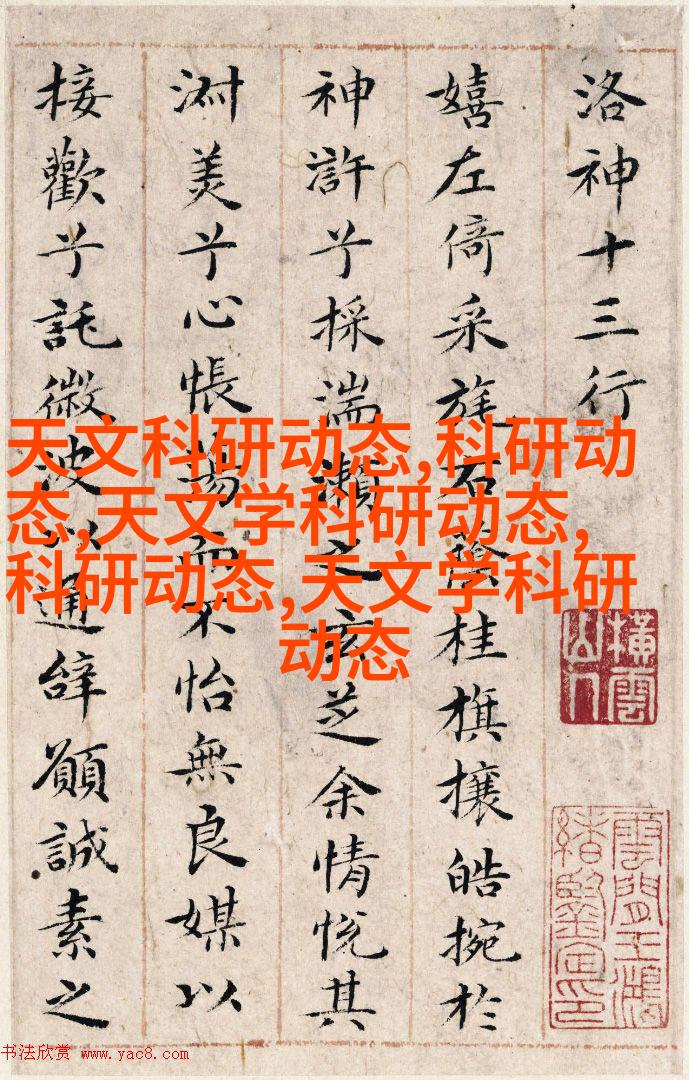 洛神十三行
嬉左倚采旄右蔭桂旗攘皓捥於
神許兮採湍瀨之玄芝余情悅其
淑美兮心悵蕩而不怡無良媒以
接歡兮託微波以通辭願誠素之
橫雲山人
雲間王鴻緒鑒定印
天文科研动态,科研动
态,天文学科研动态,
科研动态,天文学科研
动态
书法欣赏 www.yac8.com